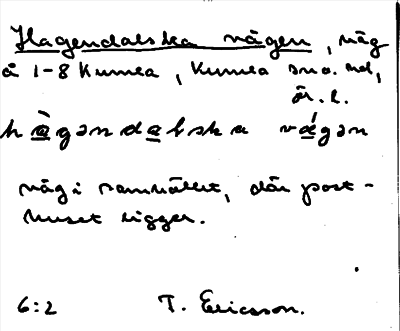 Hagendalska vägen, väg
å 1-8 Kumla, Kumla sn o. hd,
ör. l.
hàgəndalska vägən
väg i samhället, där post-
huset ligger.
6:2 T. Ericson.